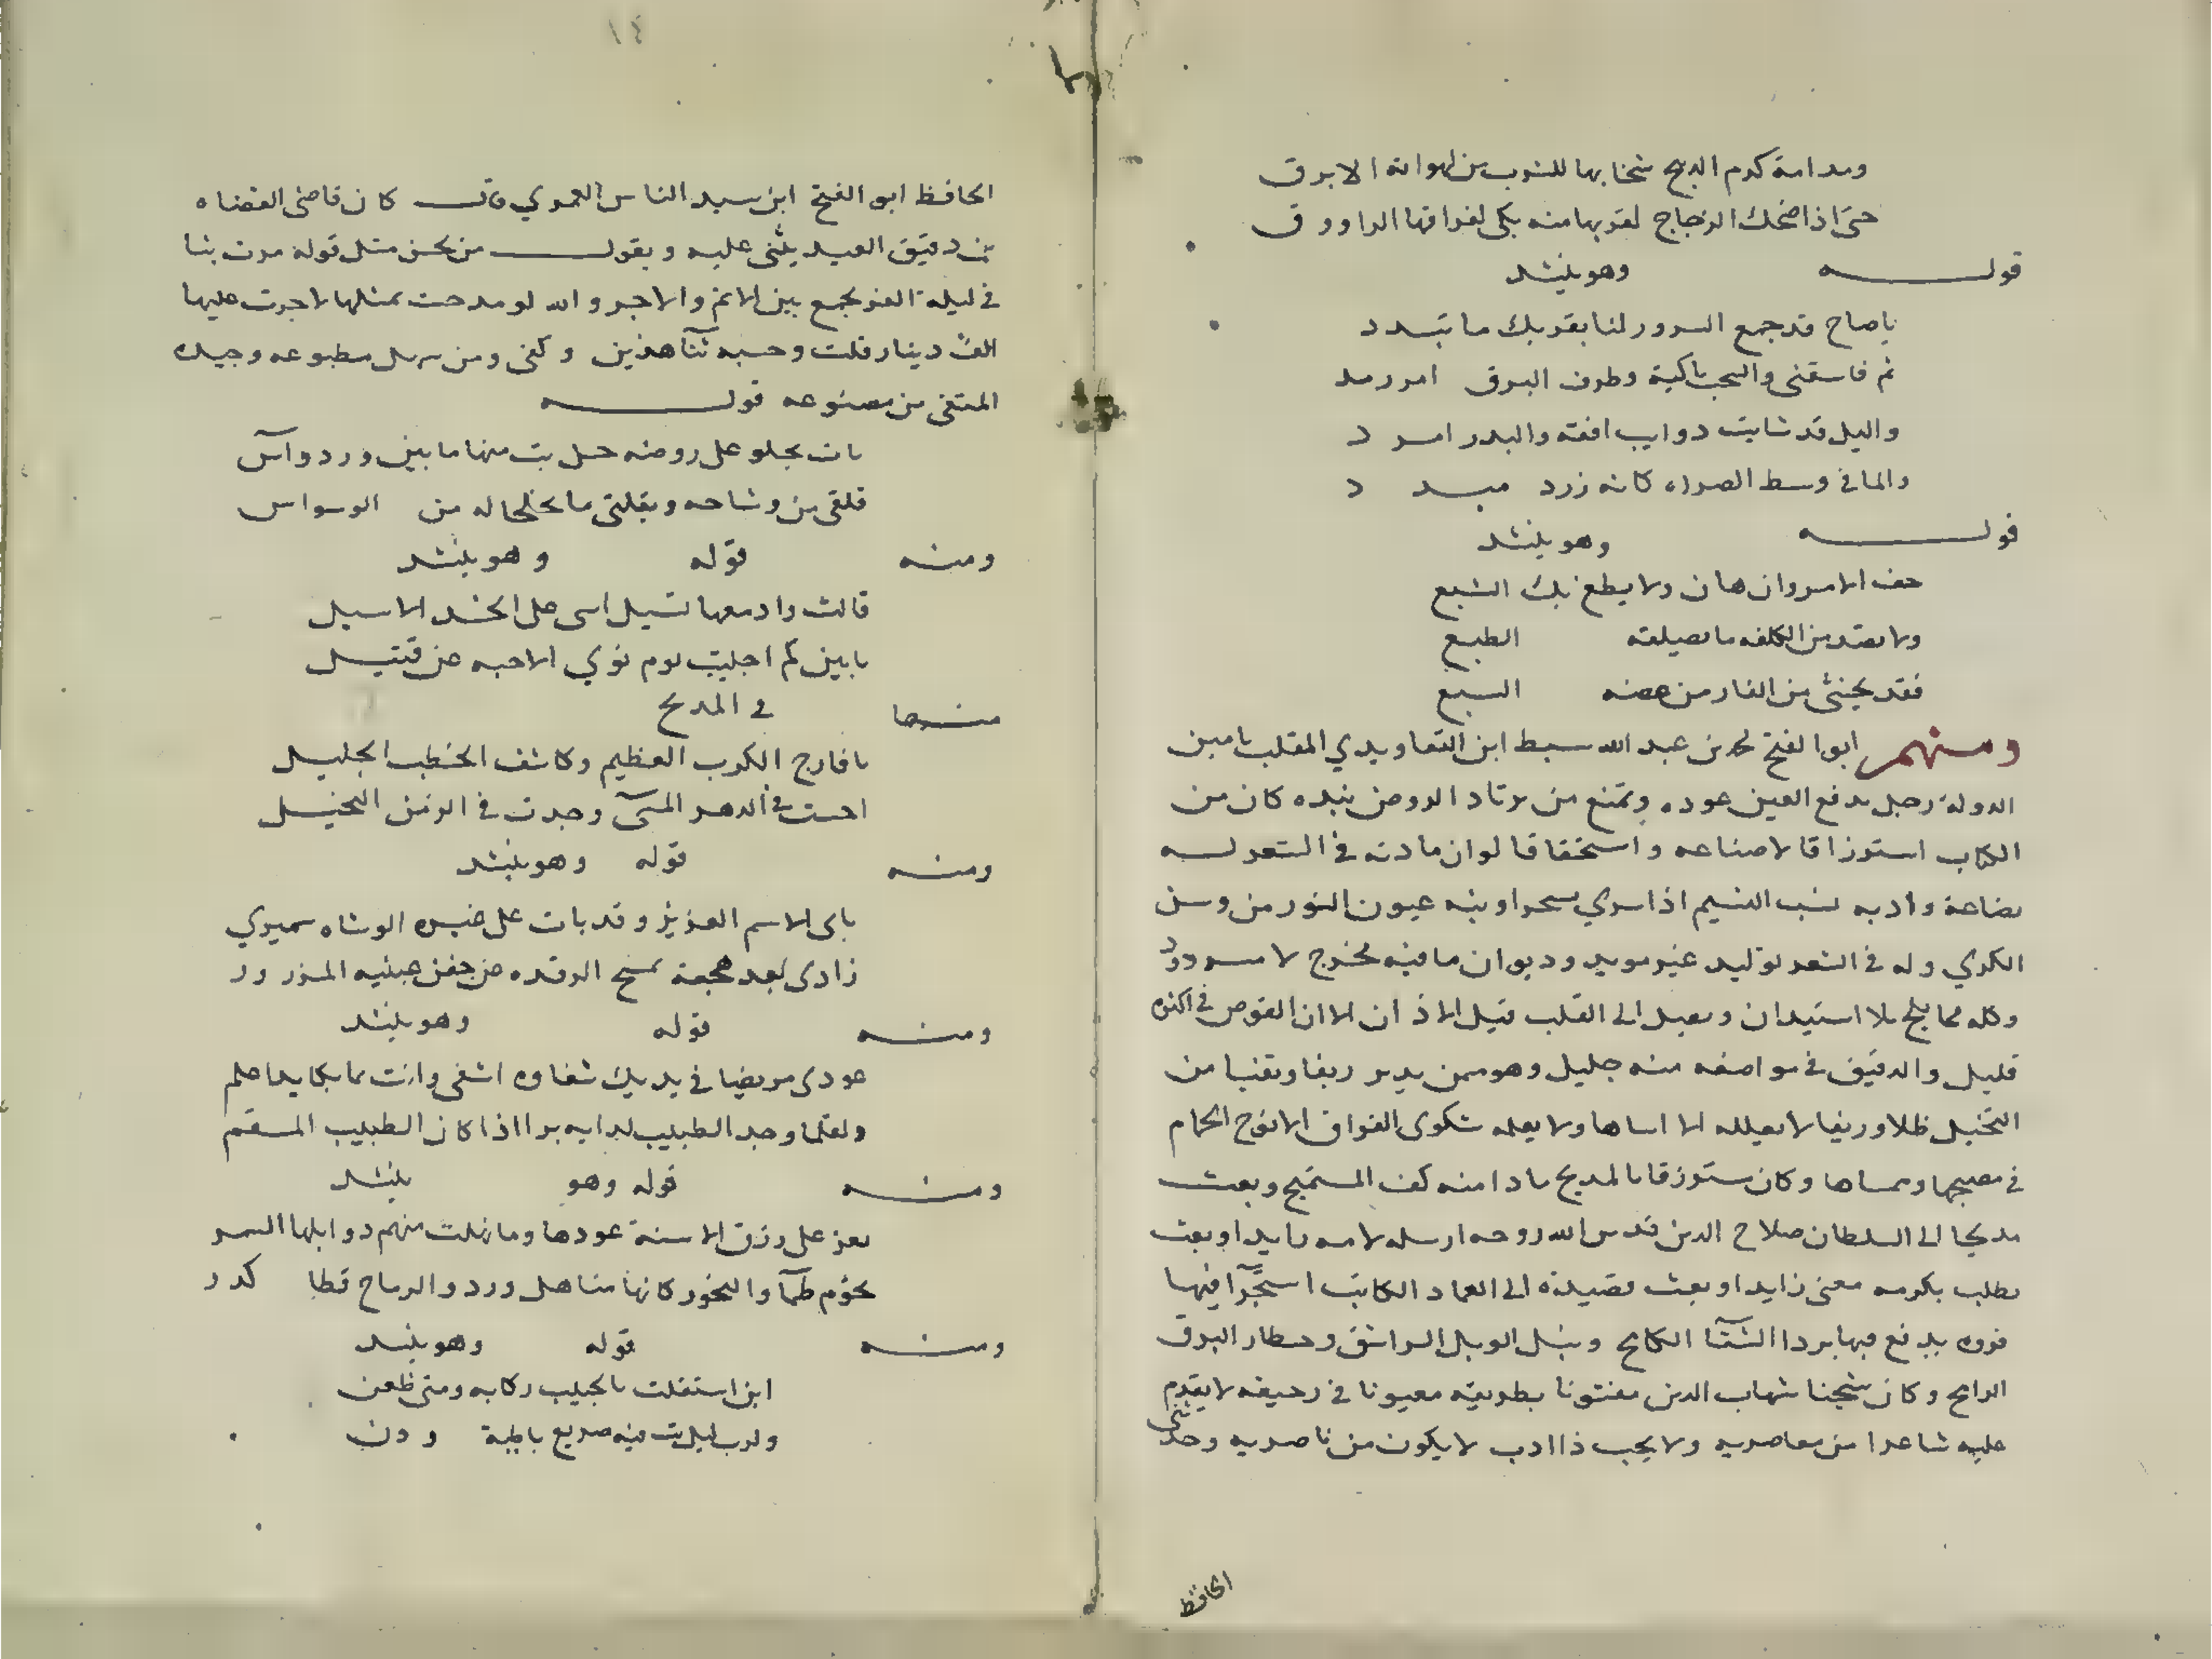 ومدامة كدم الذبيح سخا بها للشرب من لهواته الابرق
حتى اذا ضحك الزجاج لقربها منه بكى لفراقها الراووق
قوله وهو ينشد
يا صاح قد جمع السرور لنا بقربك ما تبدد
ثم فاسقنى والسحب باكية وطرف البرق ارمد
والليل قد شابت دوايب افقه والبدر امرد
والما فى وسط الصراه كانه زرد مبرد
قوله وهو ينشد
خف الامر وان هان ولا يطع بك الشبع
ولا يعتد من الكلفه ما الطبع
فقد يخشى من الفار من عضه السبع
ومنهم ابو الفتح محمد بن عبد الله سبط ابن التعاويدي الملقب بامين
الدولة رجل يدفع العين عوده ويمتع من يرتاد الروض بنده كان من
الكتاب استرزاقا لا صناعه واستحقاقا لو ان مادته فى الشعر له
بضاعة وادبه نسب النسيم اذا سري سحرا ونبه عيون النور من وسن
الكري وله فى الشعر توليد غير مويد وديوان ما فيه مخرج لا مردود
وكله مما يلج بلا استيدان ويصل الى القلب قبل الاذان الا ان الغوص فى اكثره
قليل والدقيق فى مواضعه منه جليل وهو ممن يدير ريقا ويفيا من
النخيل ظلا وريفا لا يعلله الا اساها ولا يعله شكوى الفراق الا نوح الحمام
فى مصبحها وممساها وكان مسترزقا بالمديح مادا منه كف المستميح وبعث
مديحا الى السلطان صلاح الدين قدس الله روحه ارسله لامه رايدا وبعث
يطلب بكرمه معنى زايدا وبعث قصيدة الى العماد الكاتب استجدا فيها
فروه يدفع فيها برد الشتا الكالح ونبل الوبل الراشق وخطار البرق
الرامح وكان شيخنا شهاب الدين مفتونا بطريقته معيونا فى رحيقه لا يقدم
عليه شاعرا من معاصريه ولا يحب ذا ادب لا يكون من ناصريه وحدثنى
الحافظ
١٤
الحافظ ابو الفتح ابن سيد الناس العمري قال كان قاضى القضاه
بن دقيق العيد يثنى عليه ويقول من يحسن مثل قوله مرت بنا
فى ليلة النفر تجمع بين الاثم والاجر والله لو مدحت بمثلها لاجزت عليها
الف دينار قلت وحسبه ثنا هذين وكفى ومن مطبوعه وجيده
المنتقى من مصنوعه قوله
بات يجلو على روضه حسن بت منها ما بين ورد وآس
قلقى من وشاحه وبقلبى ما بخلخاله من الوسواس
ومنه قوله وهو ينشد
قالت وادمعها تسيل اسى على الخد الاسيل
يا بين كم اجليت يوم نوي الاحبه عن قتيل
منها فى المدح
يا فارج الكرب العظيم وكاشف الخطب الجليل
احسنت فى الدهر المسى وجدت فى الزمن البخيل
ومنه قوله وهو ينشد
بابى الاسم العزيز وقد بات على خيره الوشاه سميري
زادى بعد هجعة يمسح الرقده عن جفن عينيه المزرور
ومنه قوله وهو ينشد
عودى مريضا فى يديك شفاوه اشفى وانت بما يكابد اعلم
ولقلما وجد الطبيب لدايه برا اذا كان الطبيب المسقم
ومنه قوله وهو ينشد
يعز على زرق الاسنة عودها وما نهلت منهم دوابلها السمر
تحوم ظمآ والنحور كانها مناهل ورد والرماح قطا كدر
ومنه قوله وهو ينشد
اين استقلت بالحبيب ركابه ومتى ظعن
ولرب ليل بت فيه صريع باطية ودن